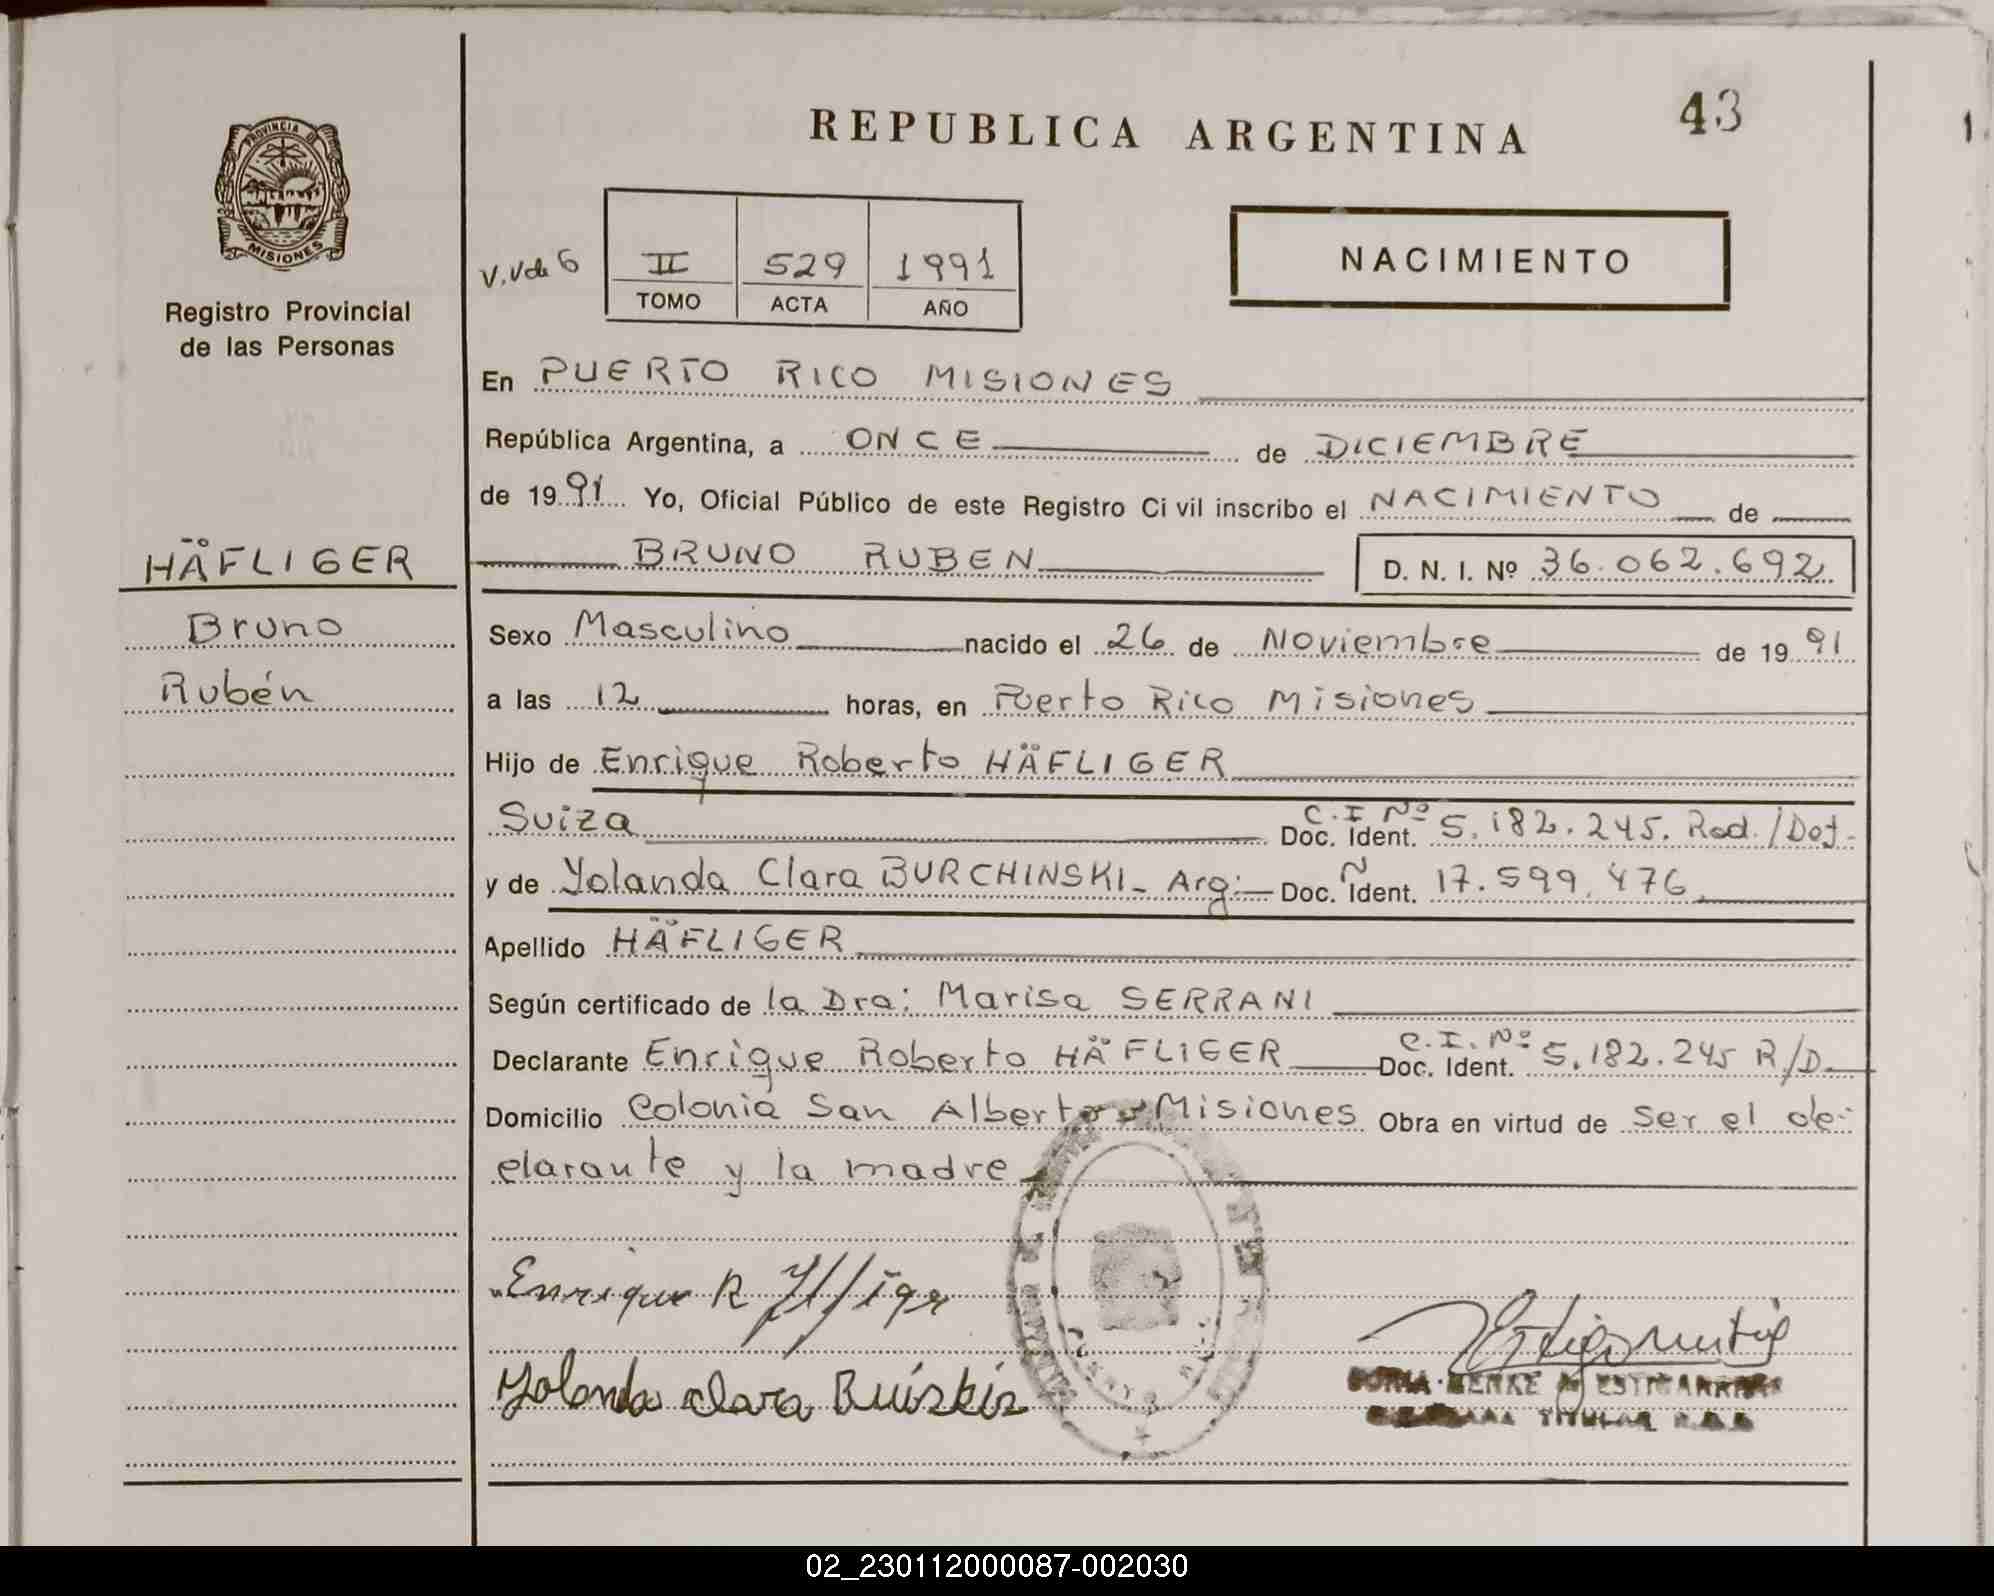 43
REPUBLICA ARGENTINA
PROVINCIA DE
MISIONES
Registro Provincial
de las Personas
V.Vda 6
II 529 1991
TOMO ACTA AÑO
NACIMIENTO
En PUERTO RICO MISIONES
República Argentina, a ONCE de DICIEMBRE
de 1991 Yo, Oficial Público de este Registro Civil inscribo el NACIMIENTO de
BRUNO RUBEN D. N. I. Nº 36.062.692
HÄFLIGER
Bruno
Rubén
Sexo Masculino nacido el 26 de Noviembre de 1991
a las 12 horas, en Puerto Rico Misiones
Hijo de Enrique Roberto HÄFLIGER
Suiza C.I Nº Doc. Ident. 5.182.245. Rad./Def.
y de Yolanda Clara BURCHINSKI- Arg: Doc. Ident. N 17.599.476
Apellido HÄFLIGER
Según certificado de la Dra: Marisa SERRANI
Declarante Enrique Roberto HÄFLIGER C.I. Nº Doc. Ident. 5.182.245 R/D
Domicilio Colonia San Alberto-Misiones Obra en virtud de ser el de-
clarante y la madre
Enrique R
Yolanda Clara
TITULAR
02_230112000087-002030